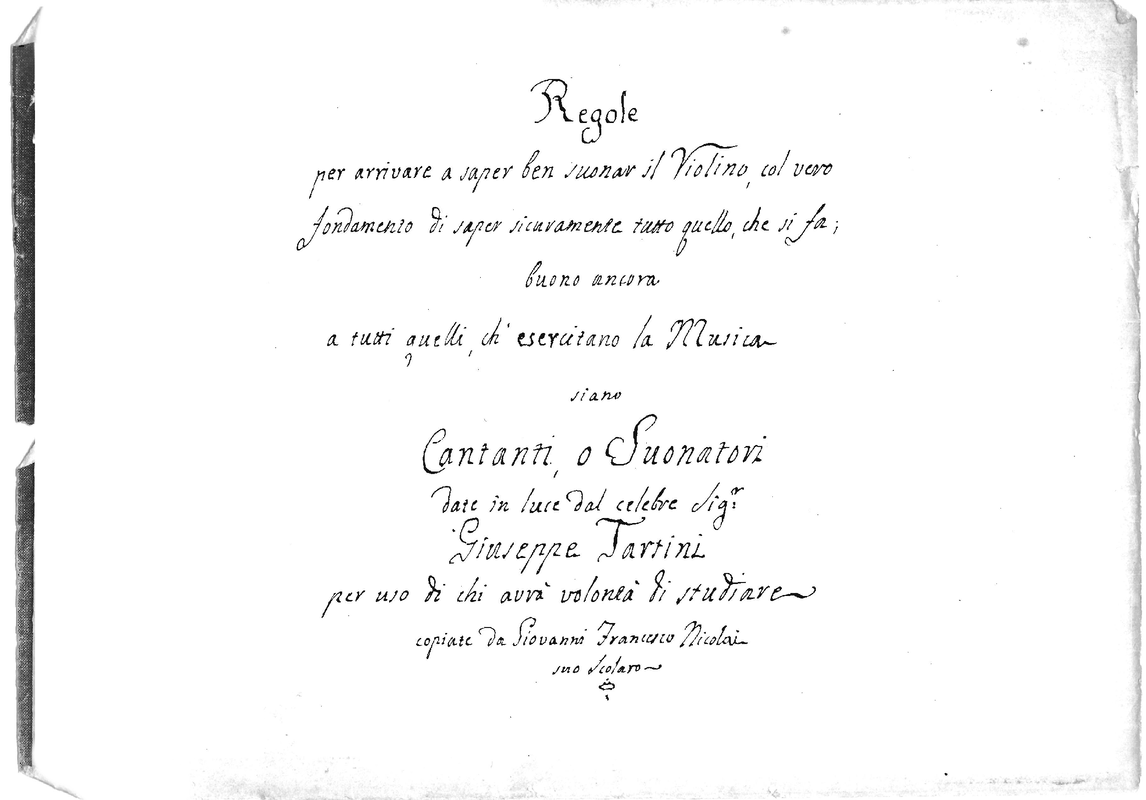 Regole
per arrivare a saper ben suonar il Violino, col vero
fondamento di saper sicuramente tutto quello, che si fa;
buono ancora
a tutti quelli, ch' esercitano la Musica
siano
Cantanti, o Suonatori
date in luce dal celebre Sigr.
Giuseppe Tartini
per uso di chi avrà volontà di studiare
copiate da Giovanni Francesco Nicolai
suo Scolaro